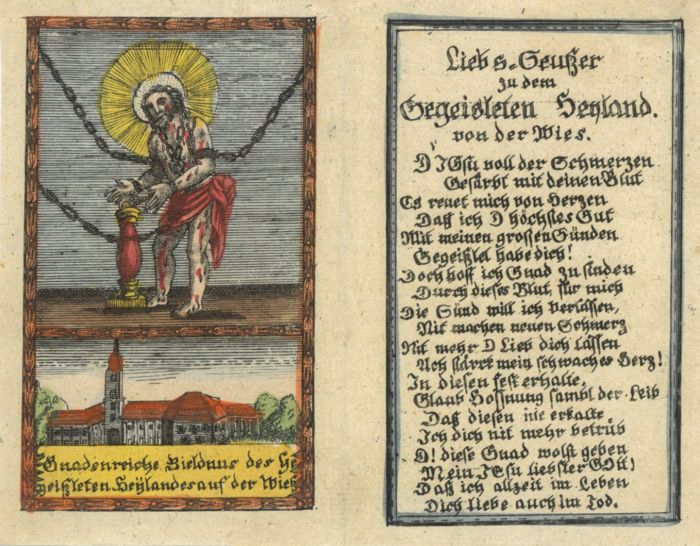 Gnadenreiche Bieldnus des Ge
geißleten Heÿlandes auf der Wieß
Liebs-Seufzer
zu dem
Gegeisleten Heyland.
von der Wies.
O JEsu voll der Schmerzen
Gefärbt mit deinen Blut
Es reuet mich von Herzen
Daß ich O höchstes Gut
Mit meinen grossen Sünden
Gegeißlet habe dich!
Doch hoff ich Gnad zu finden
Durch dieses Blut, für mich
Die Sünd will ich verlassen,
Nit machen neuen Schmerz
Nit mehr O Lieb dich lassen
Ach stärck mein schwaches Herz!
In diesen fest erhalte,
Glaub Hoffnung sambt der Leib
Daß diesen nie erkalte
Ich dich nit mehr betrüb
O! diese Gnad wolst geben
Mein JEsu liebster GOtt!
Daß ich allzeit im Leben
Dich liebe auch im Tod.